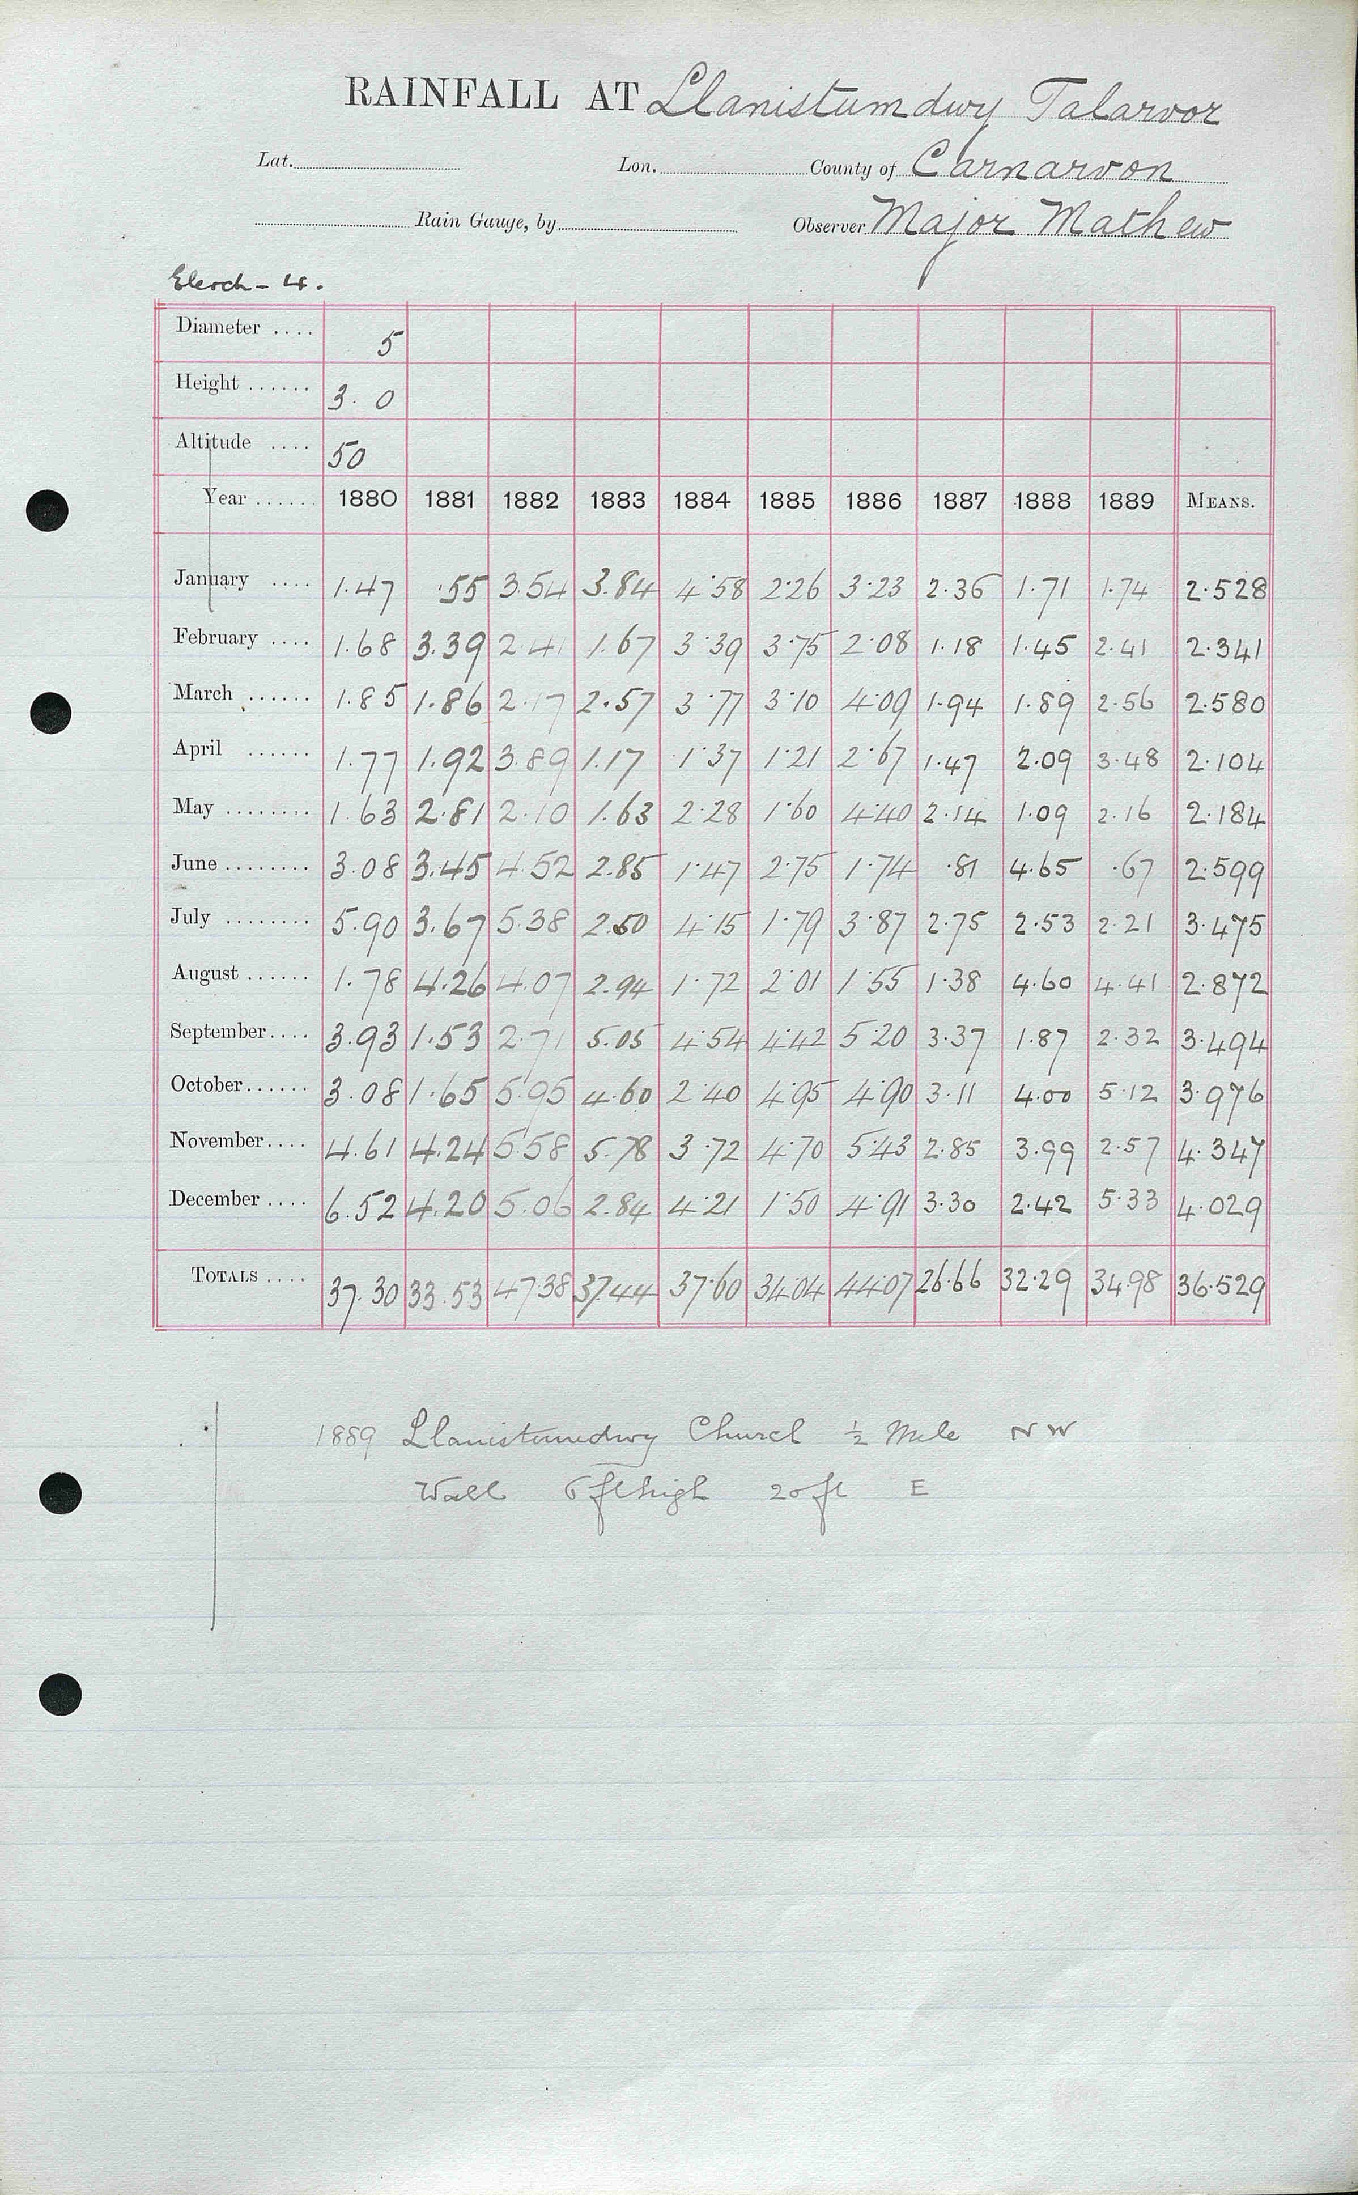 RAINFALL AT Llanistumdwy Talarvor
Lat. Lon. County of Carnarvon
Rain Gauge, by Observer Major Mathew
Elerch - 4.
Diameter .... 5
Height ...... 3. 0
Altitude .... 50
Year ...... 1880 1881 1882 1883 1884 1885 1886 1887 1888 1889 MEANS.
January .... 1.47 .55 3.54 3.84 4.58 2.26 3.23 2.36 1.71 1.74 2.528
February .... 1.68 3.39 2.41 1.67 3.39 3.75 2.08 1.18 1.45 2.41 2.341
March ...... 1.85 1.86 2.17 2.57 3.77 3.10 4.09 1.94 1.89 2.56 2.580
April ...... 1.77 1.92 3.89 1.17 1.37 1.21 2.67 1.47 2.09 3.48 2.104
May ........ 1.63 2.81 2.10 1.63 2.28 1.60 4.40 2.14 1.09 2.16 2.184
June ........ 3.08 3.45 4.52 2.85 1.47 2.75 1.74 .81 4.65 .67 2.599
July ........ 5.90 3.67 5.38 2.50 4.15 1.79 3.87 2.75 2.53 2.21 3.475
August ...... 1.78 4.26 4.07 2.94 1.72 2.01 1.55 1.38 4.60 4.41 2.872
September.... 3.93 1.53 2.71 5.05 4.54 4.42 5.20 3.37 1.87 2.32 3.494
October...... 3.08 1.65 5.95 4.60 2.40 4.95 4.90 3.11 4.00 5.12 3.976
November.... 4.61 4.24 5.58 5.78 3.72 4.70 5.43 2.85 3.99 2.57 4.347
December .... 6.52 4.20 5.06 2.84 4.21 1.50 4.91 3.30 2.42 5.33 4.029
TOTALS .... 37.30 33.53 47.38 37.44 37.60 34.04 44.07 26.66 32.29 34.98 36.529
1889 Llanistumdwy Church ½ Mile NW
Wall 6 ft high 20 ft E